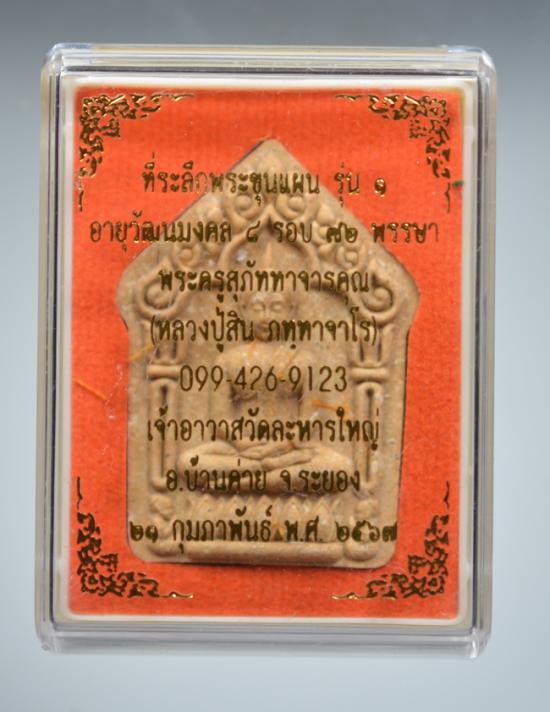 ที่ระลึกพระขุนแผน รุ่น ๑
อายุวัฒนมงคล ๘ รอบ ๗๒ พรรษา
พระครูสุภัททาจารคุณ
(หลวงปู่สิน ภทฺทาจาโร)
099-426-9123
เจ้าอาวาสวัดละหารใหญ่
อ.บ้านค่าย จ.ระยอง
๒๑ กุมภาพันธ์ พ.ศ. ๒๕๖๗